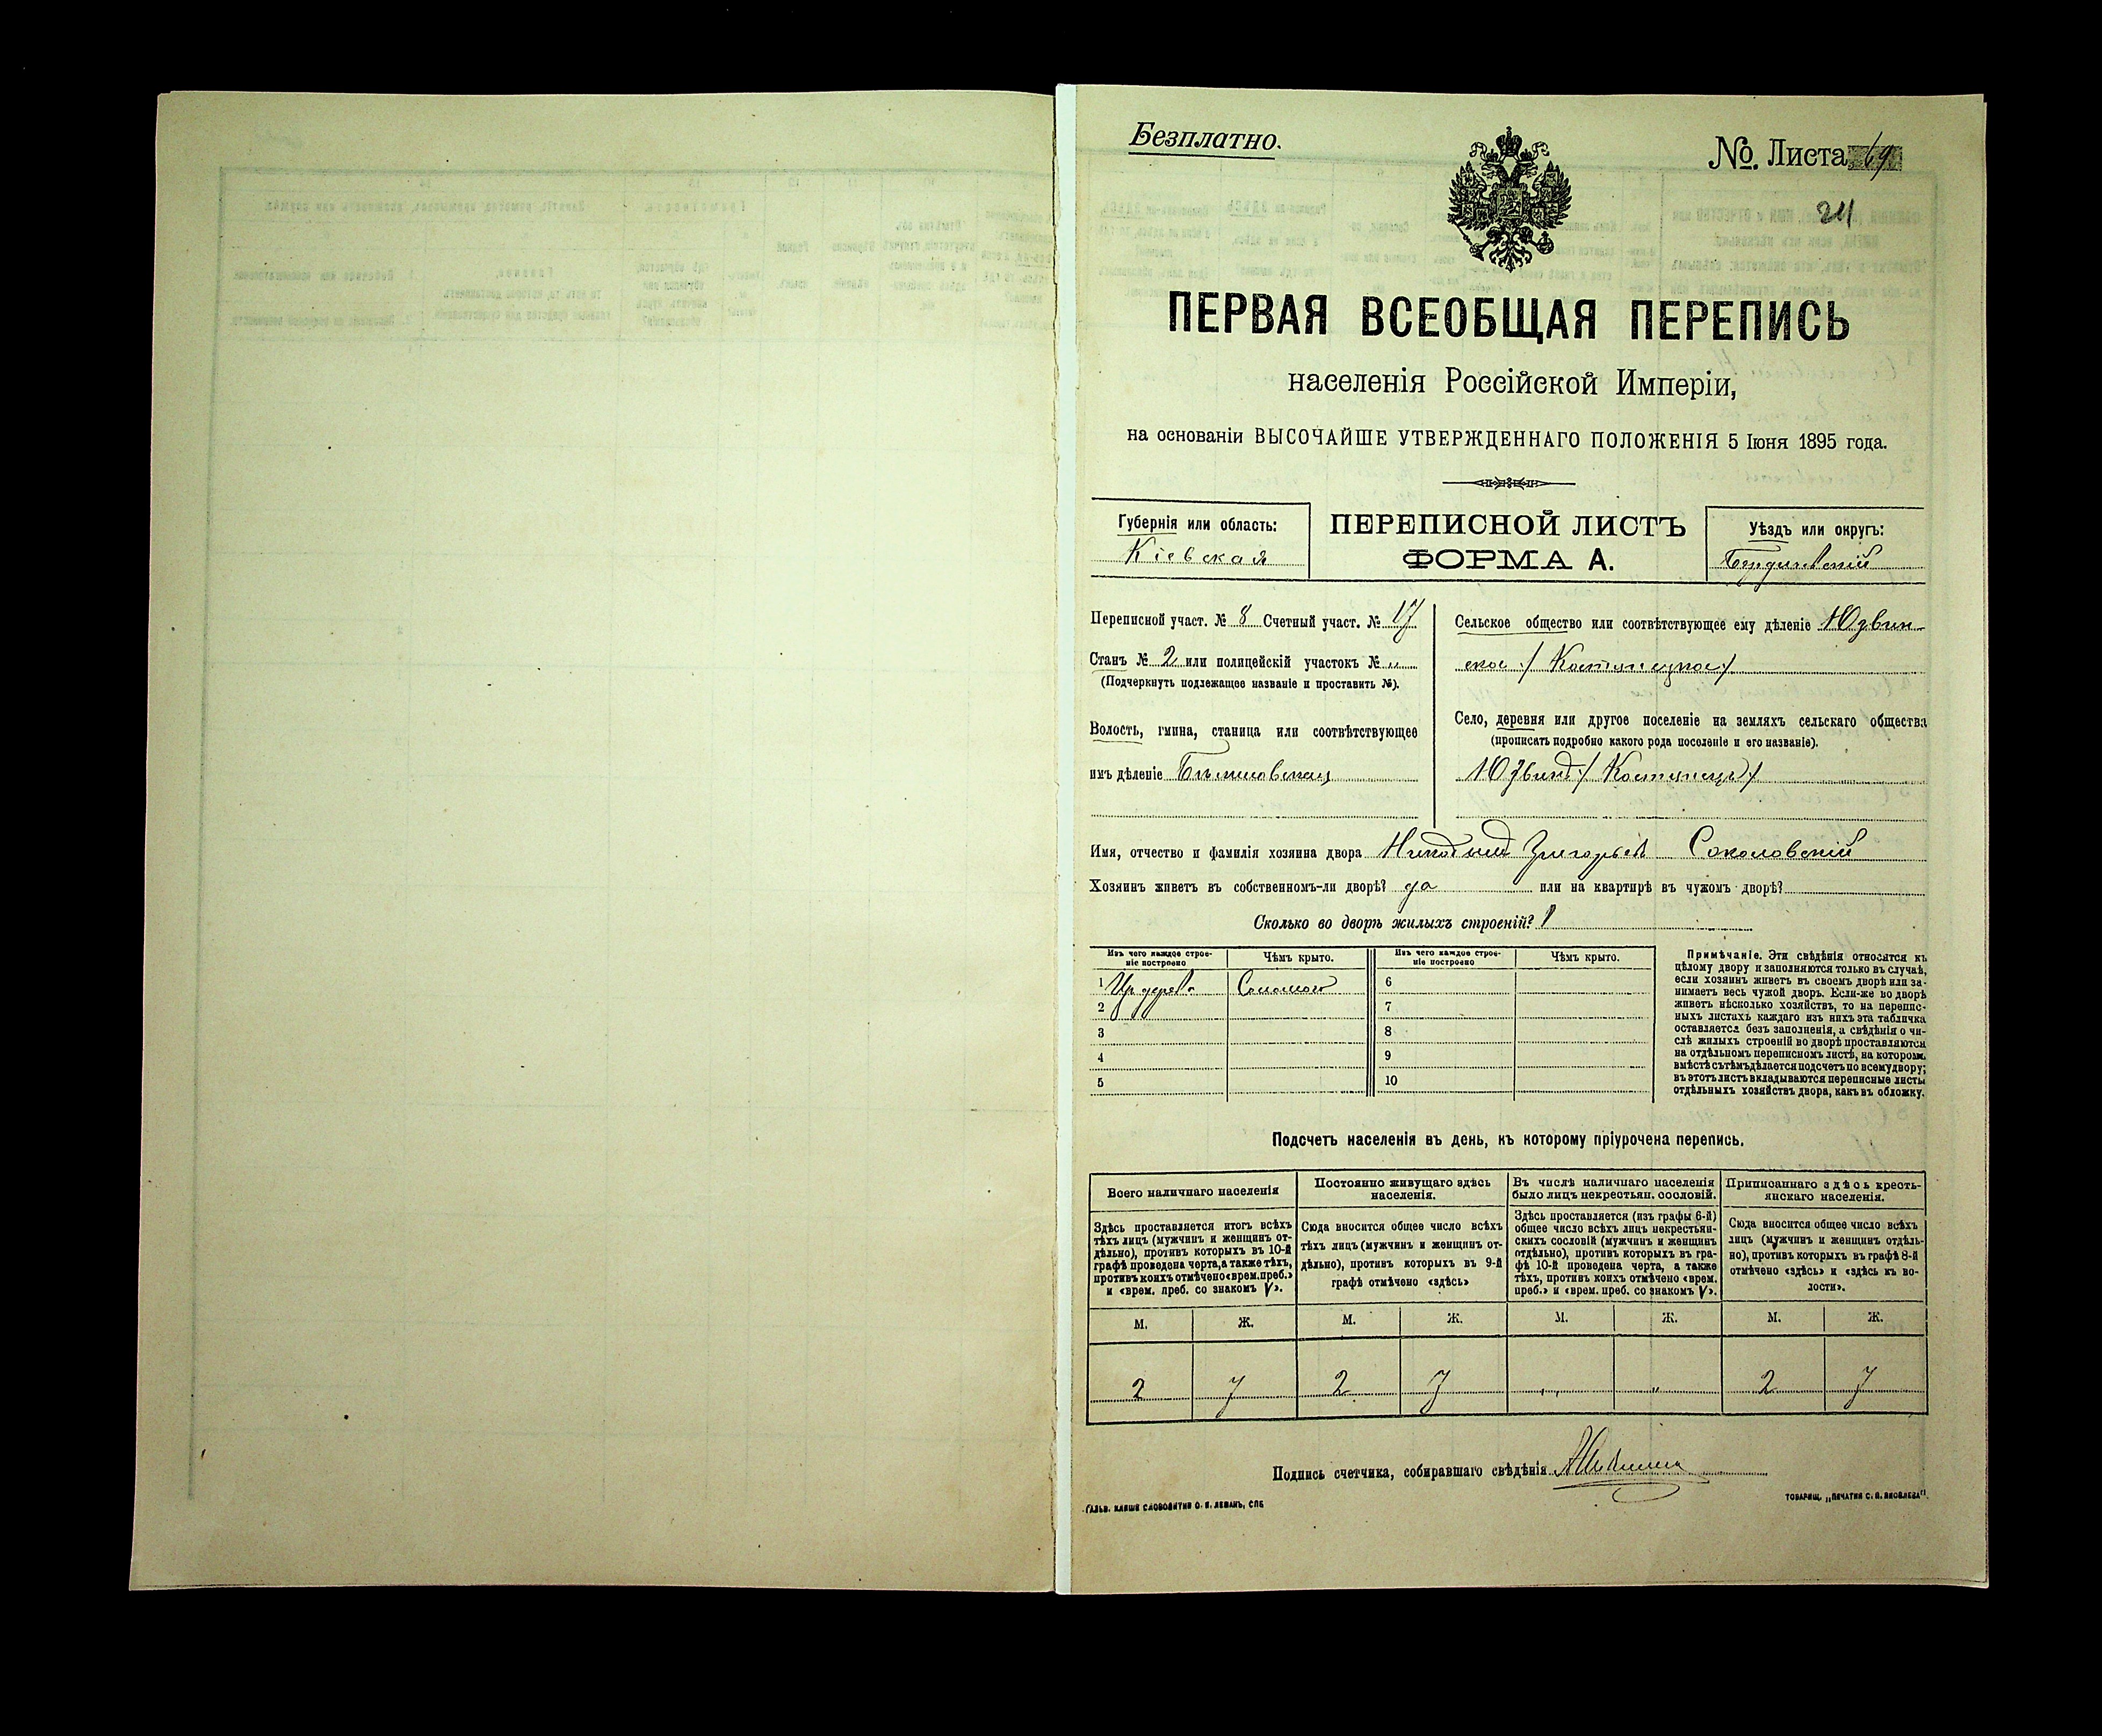 Безплатно.
№ Листа 69
24
ПЕРВАЯ ВСЕОБЩАЯ ПЕРЕПИСЬ
населенія Россійской Имперіи,
на основаніи ВЫСОЧАЙШЕ УТВЕРЖДЕННАГО ПОЛОЖЕНІЯ 5 Іюня 1895 года.
Губернія или область:
Кіевская
ПЕРЕПИСНОЙ ЛИСТЪ
ФОРМА А.
Уѣздъ или округъ:
Бердичевскій
Переписной участ. № 8 Счетный участ. № 17
Станъ № 2 или полицейскій участокъ № „
(Подчеркнуть подлежащее названіе и проставить №).
Волость, гмина, станица или соотвѣтствующее
имъ дѣленіе
Сельское общество или соотвѣтствующее ему дѣленіе Юзвин-
ское /Костянецкое/
Село, деревня или другое поселеніе на земляхъ сельскаго общества
(прописать подробно какого рода поселеніе и его названіе).
Юзвинъ /Костянецъ/
Имя, отчество и фамилія хозяина двора Никодимъ Григорьевъ Соколовскій
Хозяинъ живетъ въ собственномъ-ли дворѣ? да или на квартирѣ въ чужомъ дворѣ?
Сколько во дворѣ жилыхъ строеній? 1
Изъ чего каждое строе-
ніе построено
Чѣмъ крыто.
Изъ чего каждое строе-
ніе построено
Чѣмъ крыто.
1 Изъ дерева Соломою 6
2 7
3 8
4 9
5 10
Примѣчаніе. Эти свѣдѣнія относятся къ
цѣлому двору и заполняются только въ случаѣ,
если хозяинъ живетъ въ своемъ дворѣ или за-
нимаетъ весь чужой дворъ. Если-же во дворѣ
живетъ нѣсколько хозяйствъ, то на перепис-
ныхъ листахъ каждаго изъ нихъ эта табличка
оставляется безъ заполненія, а свѣдѣнія о чи-
слѣ жилыхъ строеній во дворѣ проставляются
на отдѣльномъ переписномъ листѣ, на которомъ
вмѣстѣ съ тѣмъ дѣлается подсчетъ по всему двору;
въ этотъ листъ вкладываются переписные листы
отдѣльныхъ хозяйствъ двора, какъ въ обложку.
Подсчетъ населенія въ день, къ которому пріурочена перепись.
Всего наличнаго населенія
Здѣсь проставляется итогъ всѣхъ
тѣхъ лицъ (мужчинъ и женщинъ от-
дѣльно), противъ которыхъ въ 10-й
графѣ проведена черта, а также тѣхъ,
противъ коихъ отмѣчено «врем. преб.»
и «врем. преб. со знакомъ V».
Постоянно живущаго здѣсь
населенія.
Сюда вносится общее число всѣхъ
тѣхъ лицъ (мужчинъ и женщинъ от-
дѣльно), противъ которыхъ въ 9-й
графѣ отмѣчено «здѣсь»
Въ числѣ наличнаго населенія
было лицъ некрестьян. сословій.
Здѣсь проставляется (изъ графы 6-й)
общее число всѣхъ лицъ некрестьян-
скихъ сословій (мужчинъ и женщинъ
отдѣльно), противъ которыхъ въ гра-
фѣ 10-й проведена черта, а также
тѣхъ, противъ коихъ отмѣчено «врем.
преб.» и «врем. преб. со знакомъ V».
Приписаннаго здѣсь кресть-
янскаго населенія.
Сюда вносится общее число всѣхъ
лицъ (мужчинъ и женщинъ отдѣль-
но), противъ которыхъ въ графѣ 8-й
отмѣчено «здѣсь» и «здѣсь къ во-
лости».
М. Ж. М. Ж. М. Ж. М. Ж.
2 7 2 7 „ „ 2 7
Подпись счетчика, собиравшаго свѣдѣнія
ГАЛЬВ. КЛИШЕ СЛОВОЛИТНИ О. И. ЛЕМАНЪ, СПБ
ТОВАРИЩ. „ПЕЧАТНЯ С. П. ЯКОВЛЕВА“.